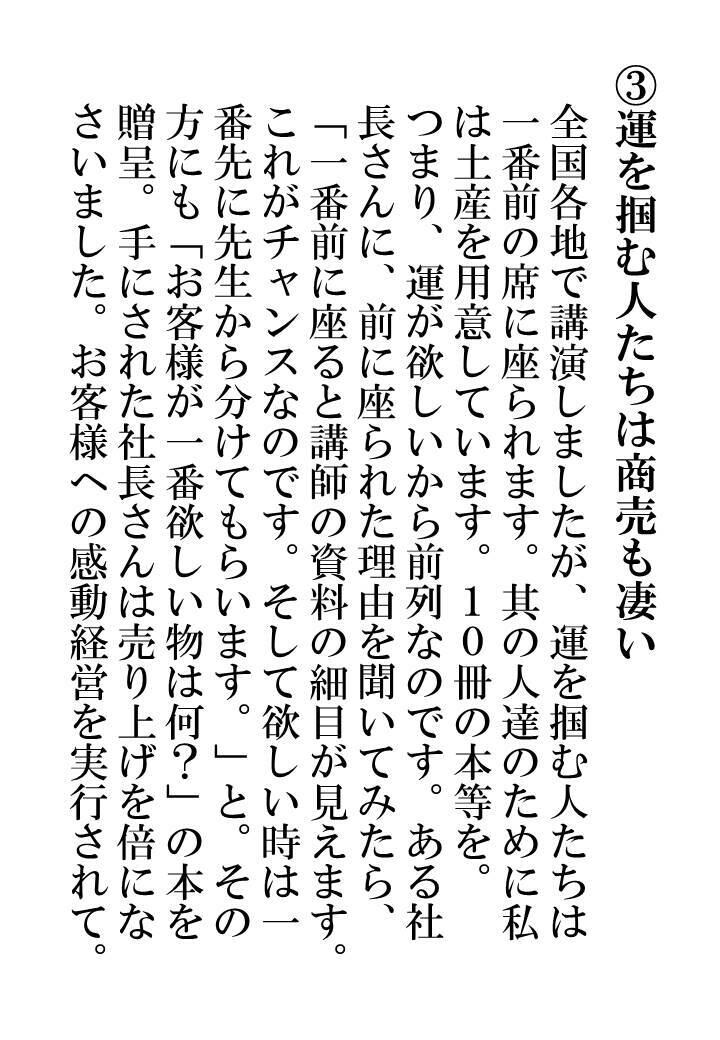 ③運を掴む人たちは商売も凄い
全国各地で講演しましたが、運を掴む人たちは
一番前の席に座られます。其の人達のために私
は土産を用意しています。１０冊の本等を。
つまり、運が欲しいから前列なのです。ある社
長さんに、前に座られた理由を聞いてみたら、
「一番前に座ると講師の資料の細目が見えます。
これがチャンスなのです。そして欲しい時は一
番先に先生から分けてもらいます。」と。その
方にも「お客様が一番欲しい物は何？」の本を
贈呈。手にされた社長さんは売り上げを倍にな
さいました。お客様への感動経営を実行されて。